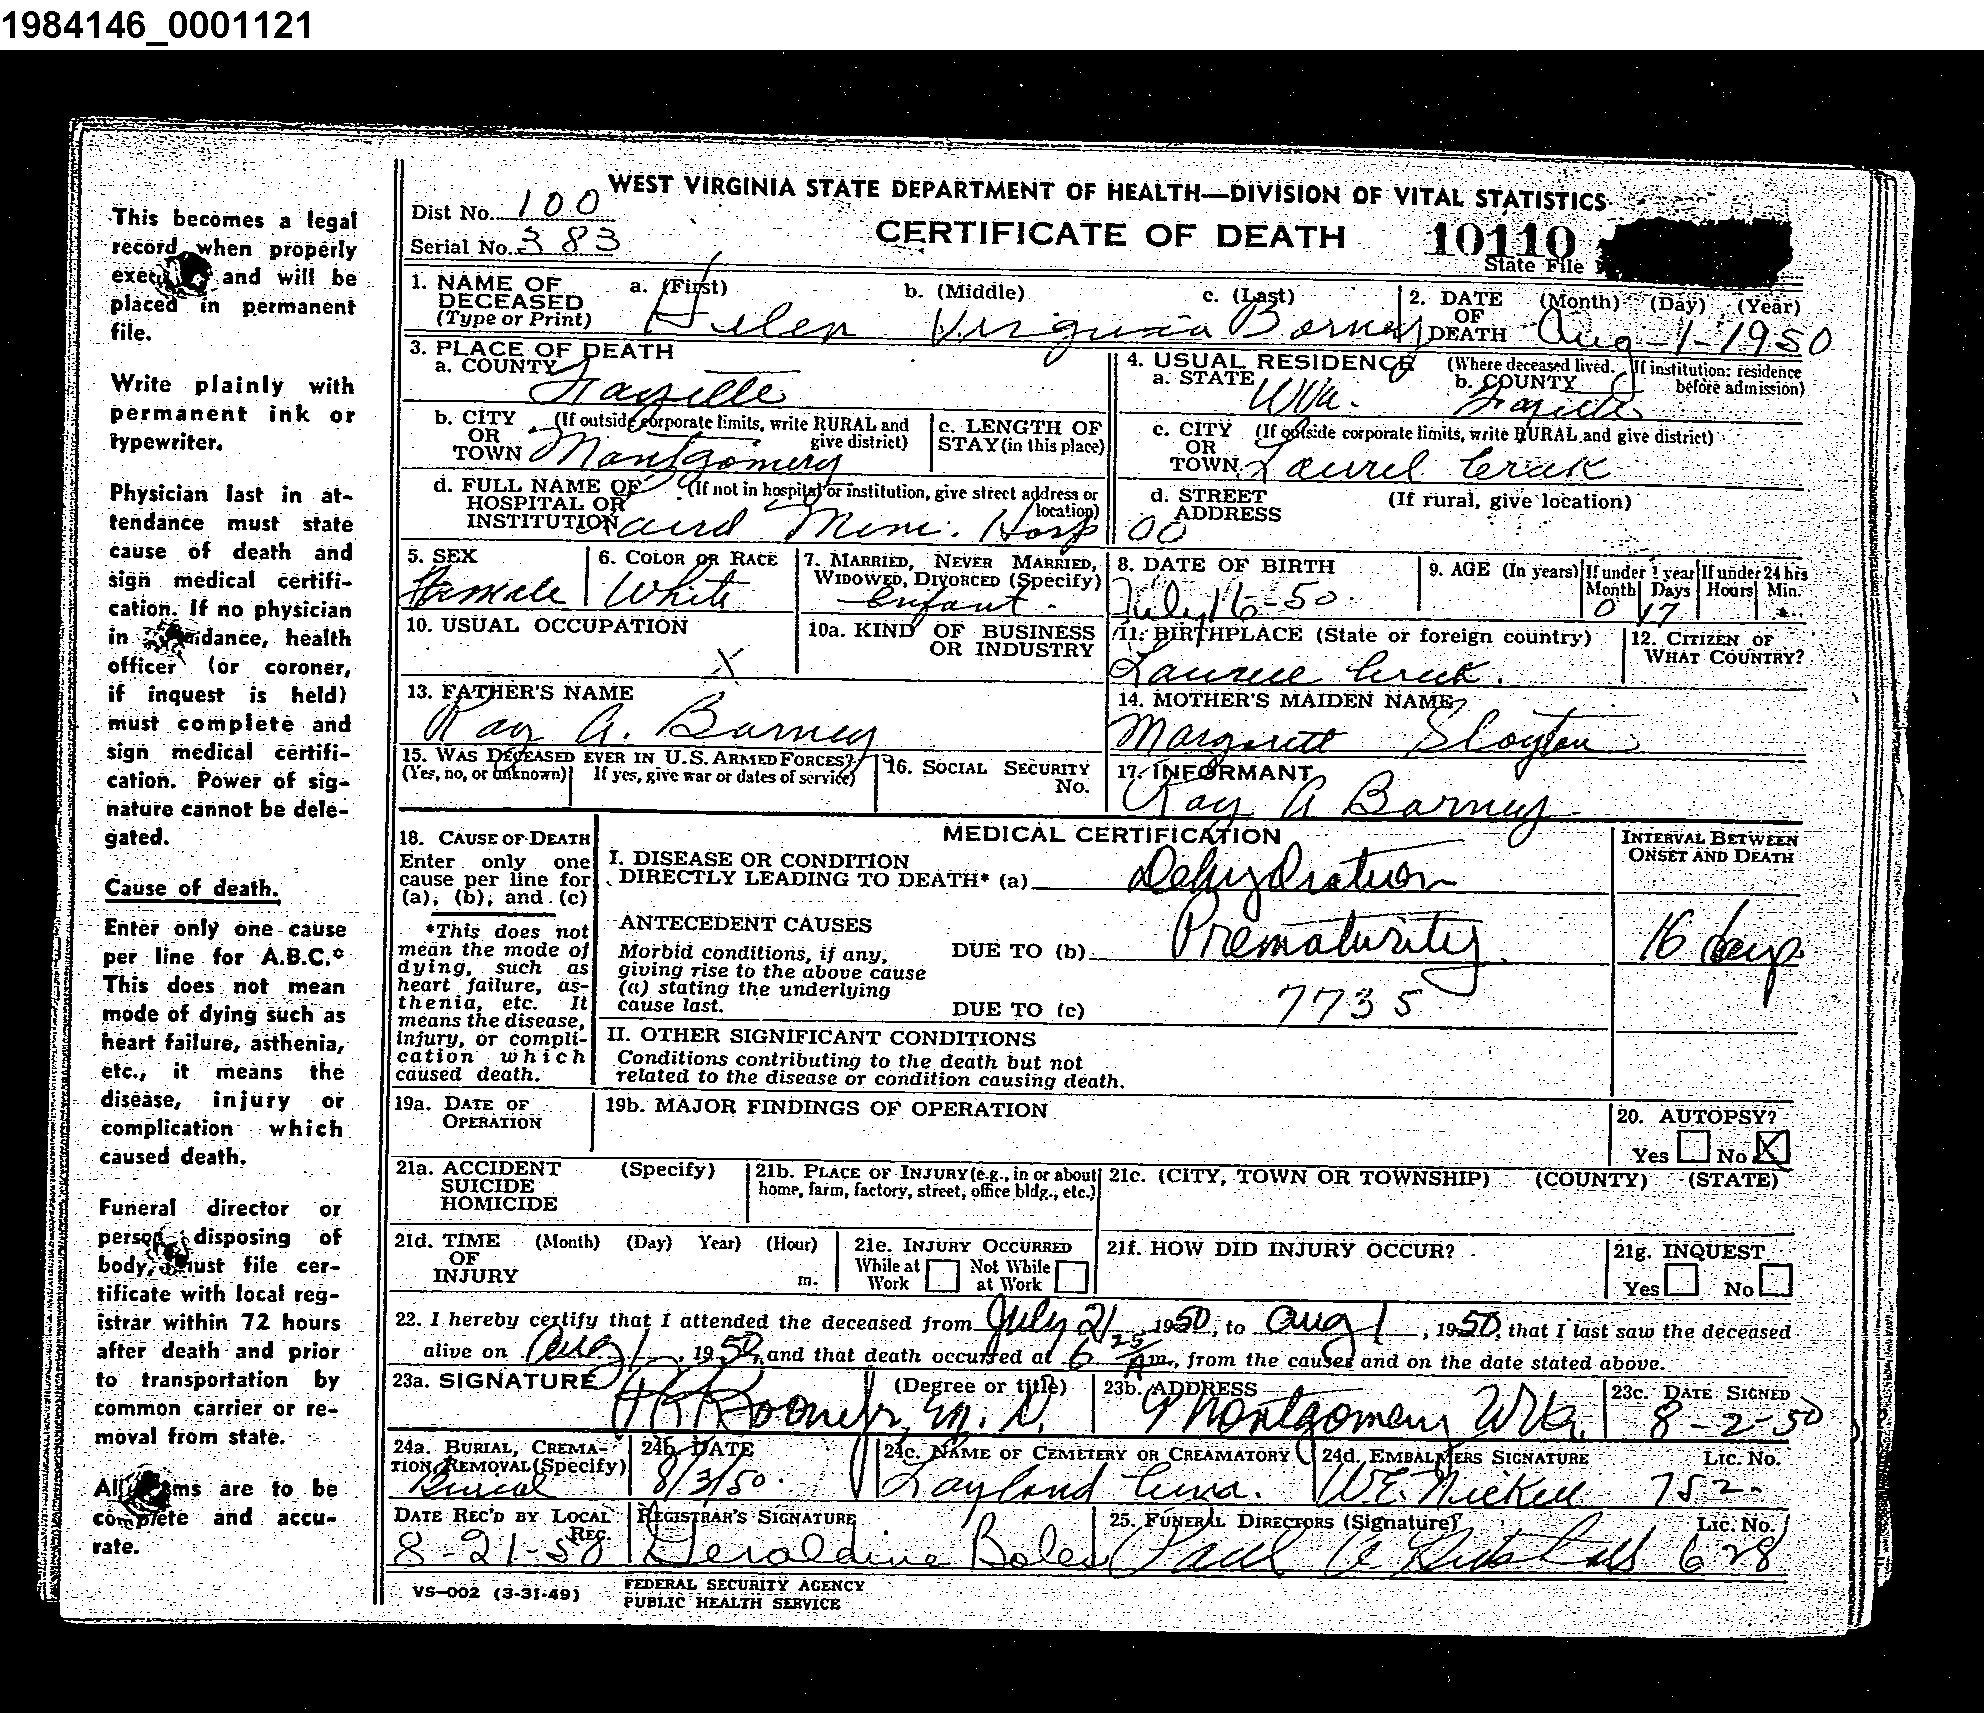 1984146_0001121
This becomes a legal
record when properly
and will be
placed in permanent
file.
Write plainly with
permanent ink or
typewriter.
Physician last in at-
tendance must state
cause of death and
sign medical certifi-
cation. If no physician
in health
officer (or coroner,
if inquest is held)
must complete and
sign medical certifi-
cation. Power of sig-
nature cannot be dele-
gated.
Cause of death.
Enter only one cause
per line for A.B.C.*
This does not mean
mode of dying such as
heart failure, asthenia,
etc., it means the
disease, injury or
complication which
caused death.
Funeral director or
person disposing of
body, must file cer-
tificate with local reg-
istrar within 72 hours
after death and prior
to transportation by
common carrier or re-
moval from state.
are to be
complete and accu-
rate.
WEST VIRGINIA STATE DEPARTMENT OF HEALTH—DIVISION OF VITAL STATISTICS
Dist No. 100
Serial No. 383
CERTIFICATE OF DEATH
10110
State File
1. NAME OF DECEASED (Type or Print) a. (First) Helen b. (Middle) Virginia c. (Last) Barney
2. DATE OF DEATH (Month) (Day) (Year) Aug-1-1950
3. PLACE OF DEATH
a. COUNTY Fayette
4. USUAL RESIDENCE (Where deceased lived. If institution: residence before admission)
a. STATE WVa. b. COUNTY Fayette
b. CITY OR TOWN (If outside corporate limits, write RURAL and give district) Montgomery
c. LENGTH OF STAY (in this place)
c. CITY OR TOWN (If outside corporate limits, write RURAL and give district) Laurel Creek
d. FULL NAME OF HOSPITAL OR INSTITUTION (If not in hospital or institution, give street address or location) Laird Mem. Hosp
d. STREET ADDRESS (If rural, give location) 00
5. SEX Female
6. COLOR OR RACE White
7. MARRIED, NEVER MARRIED, WIDOWED, DIVORCED (Specify) Infant.
8. DATE OF BIRTH July 16-50.
9. AGE (In years) If under 1 year Month 0 Days 17 If under 24 hrs Hours Min.
10. USUAL OCCUPATION X
10a. KIND OF BUSINESS OR INDUSTRY
11. BIRTHPLACE (State or foreign country) Laurel Creek.
12. CITIZEN OF WHAT COUNTRY?
13. FATHER'S NAME Ray A. Barney
14. MOTHER'S MAIDEN NAME Margarett Slayton
15. WAS DECEASED EVER IN U.S. ARMED FORCES? (Yes, no, or unknown) If yes, give war or dates of service)
16. SOCIAL SECURITY No.
17. INFORMANT Ray A Barney
18. CAUSE OF DEATH
Enter only one
cause per line for
(a), (b), and (c)
*This does not
mean the mode of
dying, such as
heart failure, as-
thenia, etc. It
means the disease,
injury, or compli-
cation which
caused death.
MEDICAL CERTIFICATION
INTERVAL BETWEEN ONSET AND DEATH
I. DISEASE OR CONDITION
DIRECTLY LEADING TO DEATH* (a) Dehydration
ANTECEDENT CAUSES
Morbid conditions, if any,
giving rise to the above cause
(a) stating the underlying
cause last.
DUE TO (b) Prematurity 16 days
DUE TO (c) 7735
II. OTHER SIGNIFICANT CONDITIONS
Conditions contributing to the death but not
related to the disease or condition causing death.
19a. DATE OF OPERATION
19b. MAJOR FINDINGS OF OPERATION
20. AUTOPSY? Yes No X
21a. ACCIDENT SUICIDE HOMICIDE (Specify)
21b. PLACE OF INJURY (e.g., in or about home, farm, factory, street, office bldg., etc.)
21c. (CITY, TOWN OR TOWNSHIP) (COUNTY) (STATE)
21d. TIME OF INJURY (Month) (Day) Year) (Hour) m.
21e. INJURY OCCURRED While at Work Not While at Work
21f. HOW DID INJURY OCCUR?
21g. INQUEST Yes No
22. I hereby certify that I attended the deceased from July 21, 1950, to Aug 1, 1950, that I last saw the deceased
alive on Aug 1, 1950, and that death occurred at 6 25 Am., from the causes and on the date stated above.
23a. SIGNATURE (Degree or title) M.D.
23b. ADDRESS Montgomery WVa.
23c. DATE SIGNED 8-2-50
24a. BURIAL, CREMA-TION, REMOVAL (Specify) Burial
24b. DATE 8/3/50.
24c. NAME OF CEMETERY OR CREAMATORY Layland Cem.
24d. EMBALMERS SIGNATURE W.E. Nickell LIC. NO. 752.
DATE REC'D BY LOCAL REG. 8-21-50
REGISTRAR'S SIGNATURE Geraldine Boles
25. FUNERAL DIRECTORS (Signature) Paul LIC. NO. 628
VS-002 (3-31-49)
FEDERAL SECURITY AGENCY
PUBLIC HEALTH SERVICE